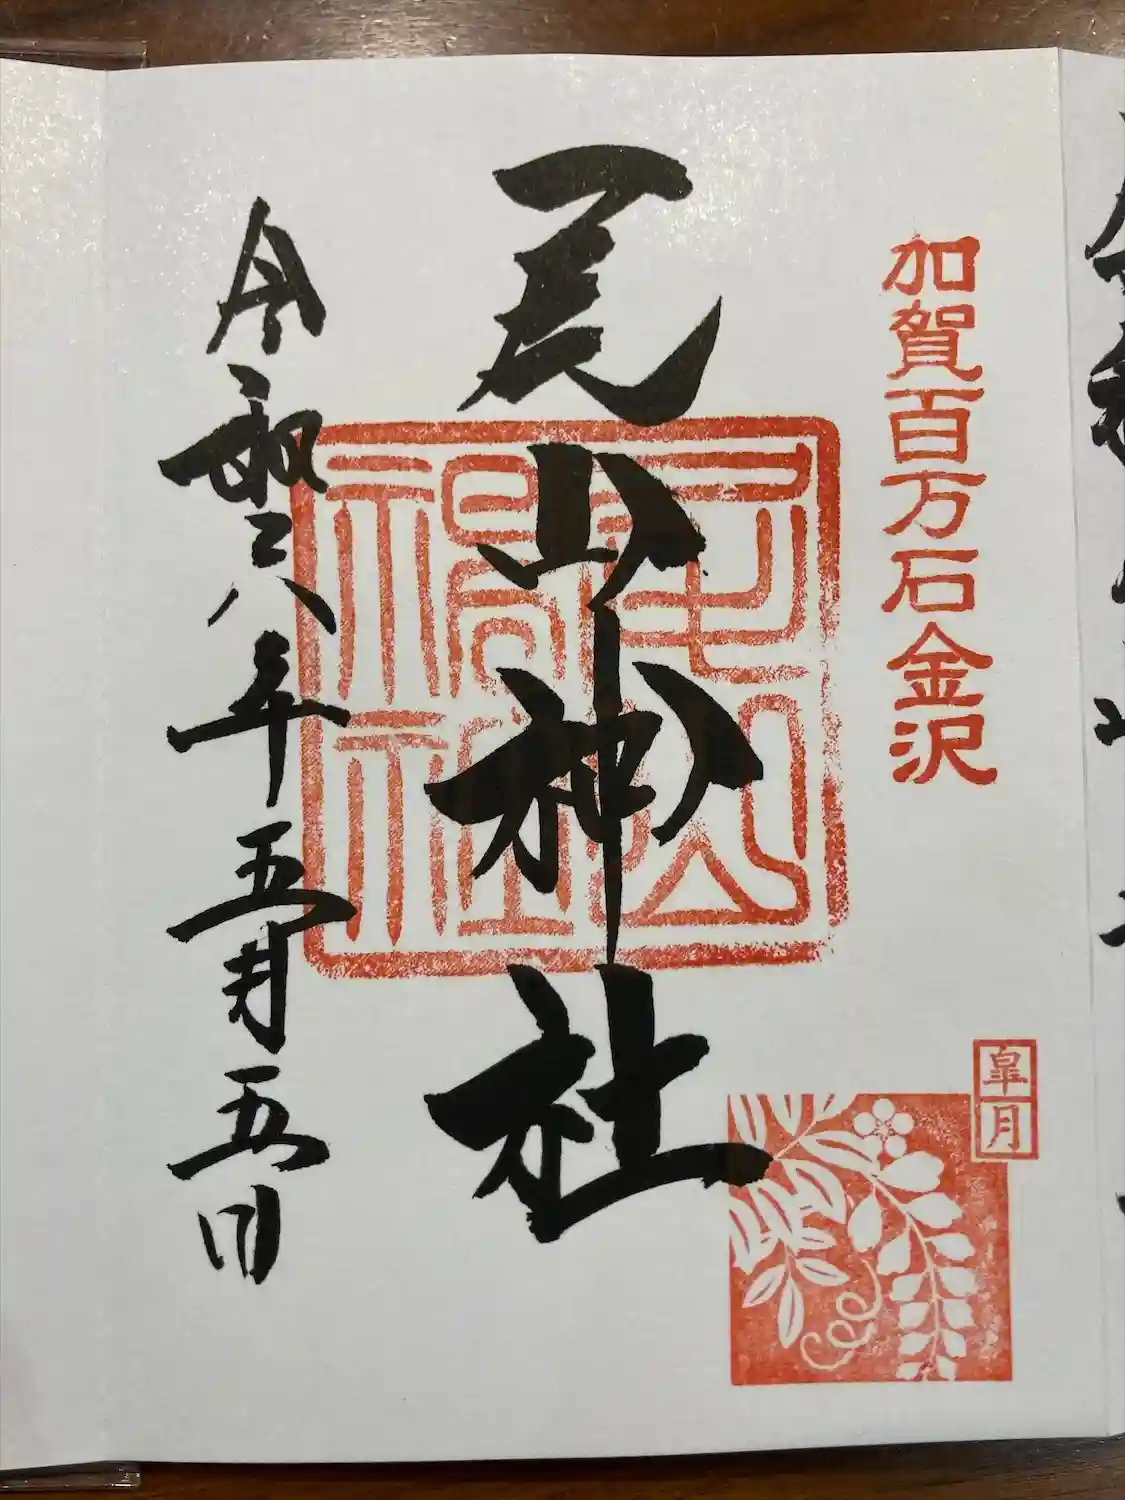 加賀百万石金沢
皐月
尾山神社
令和六年五月五日